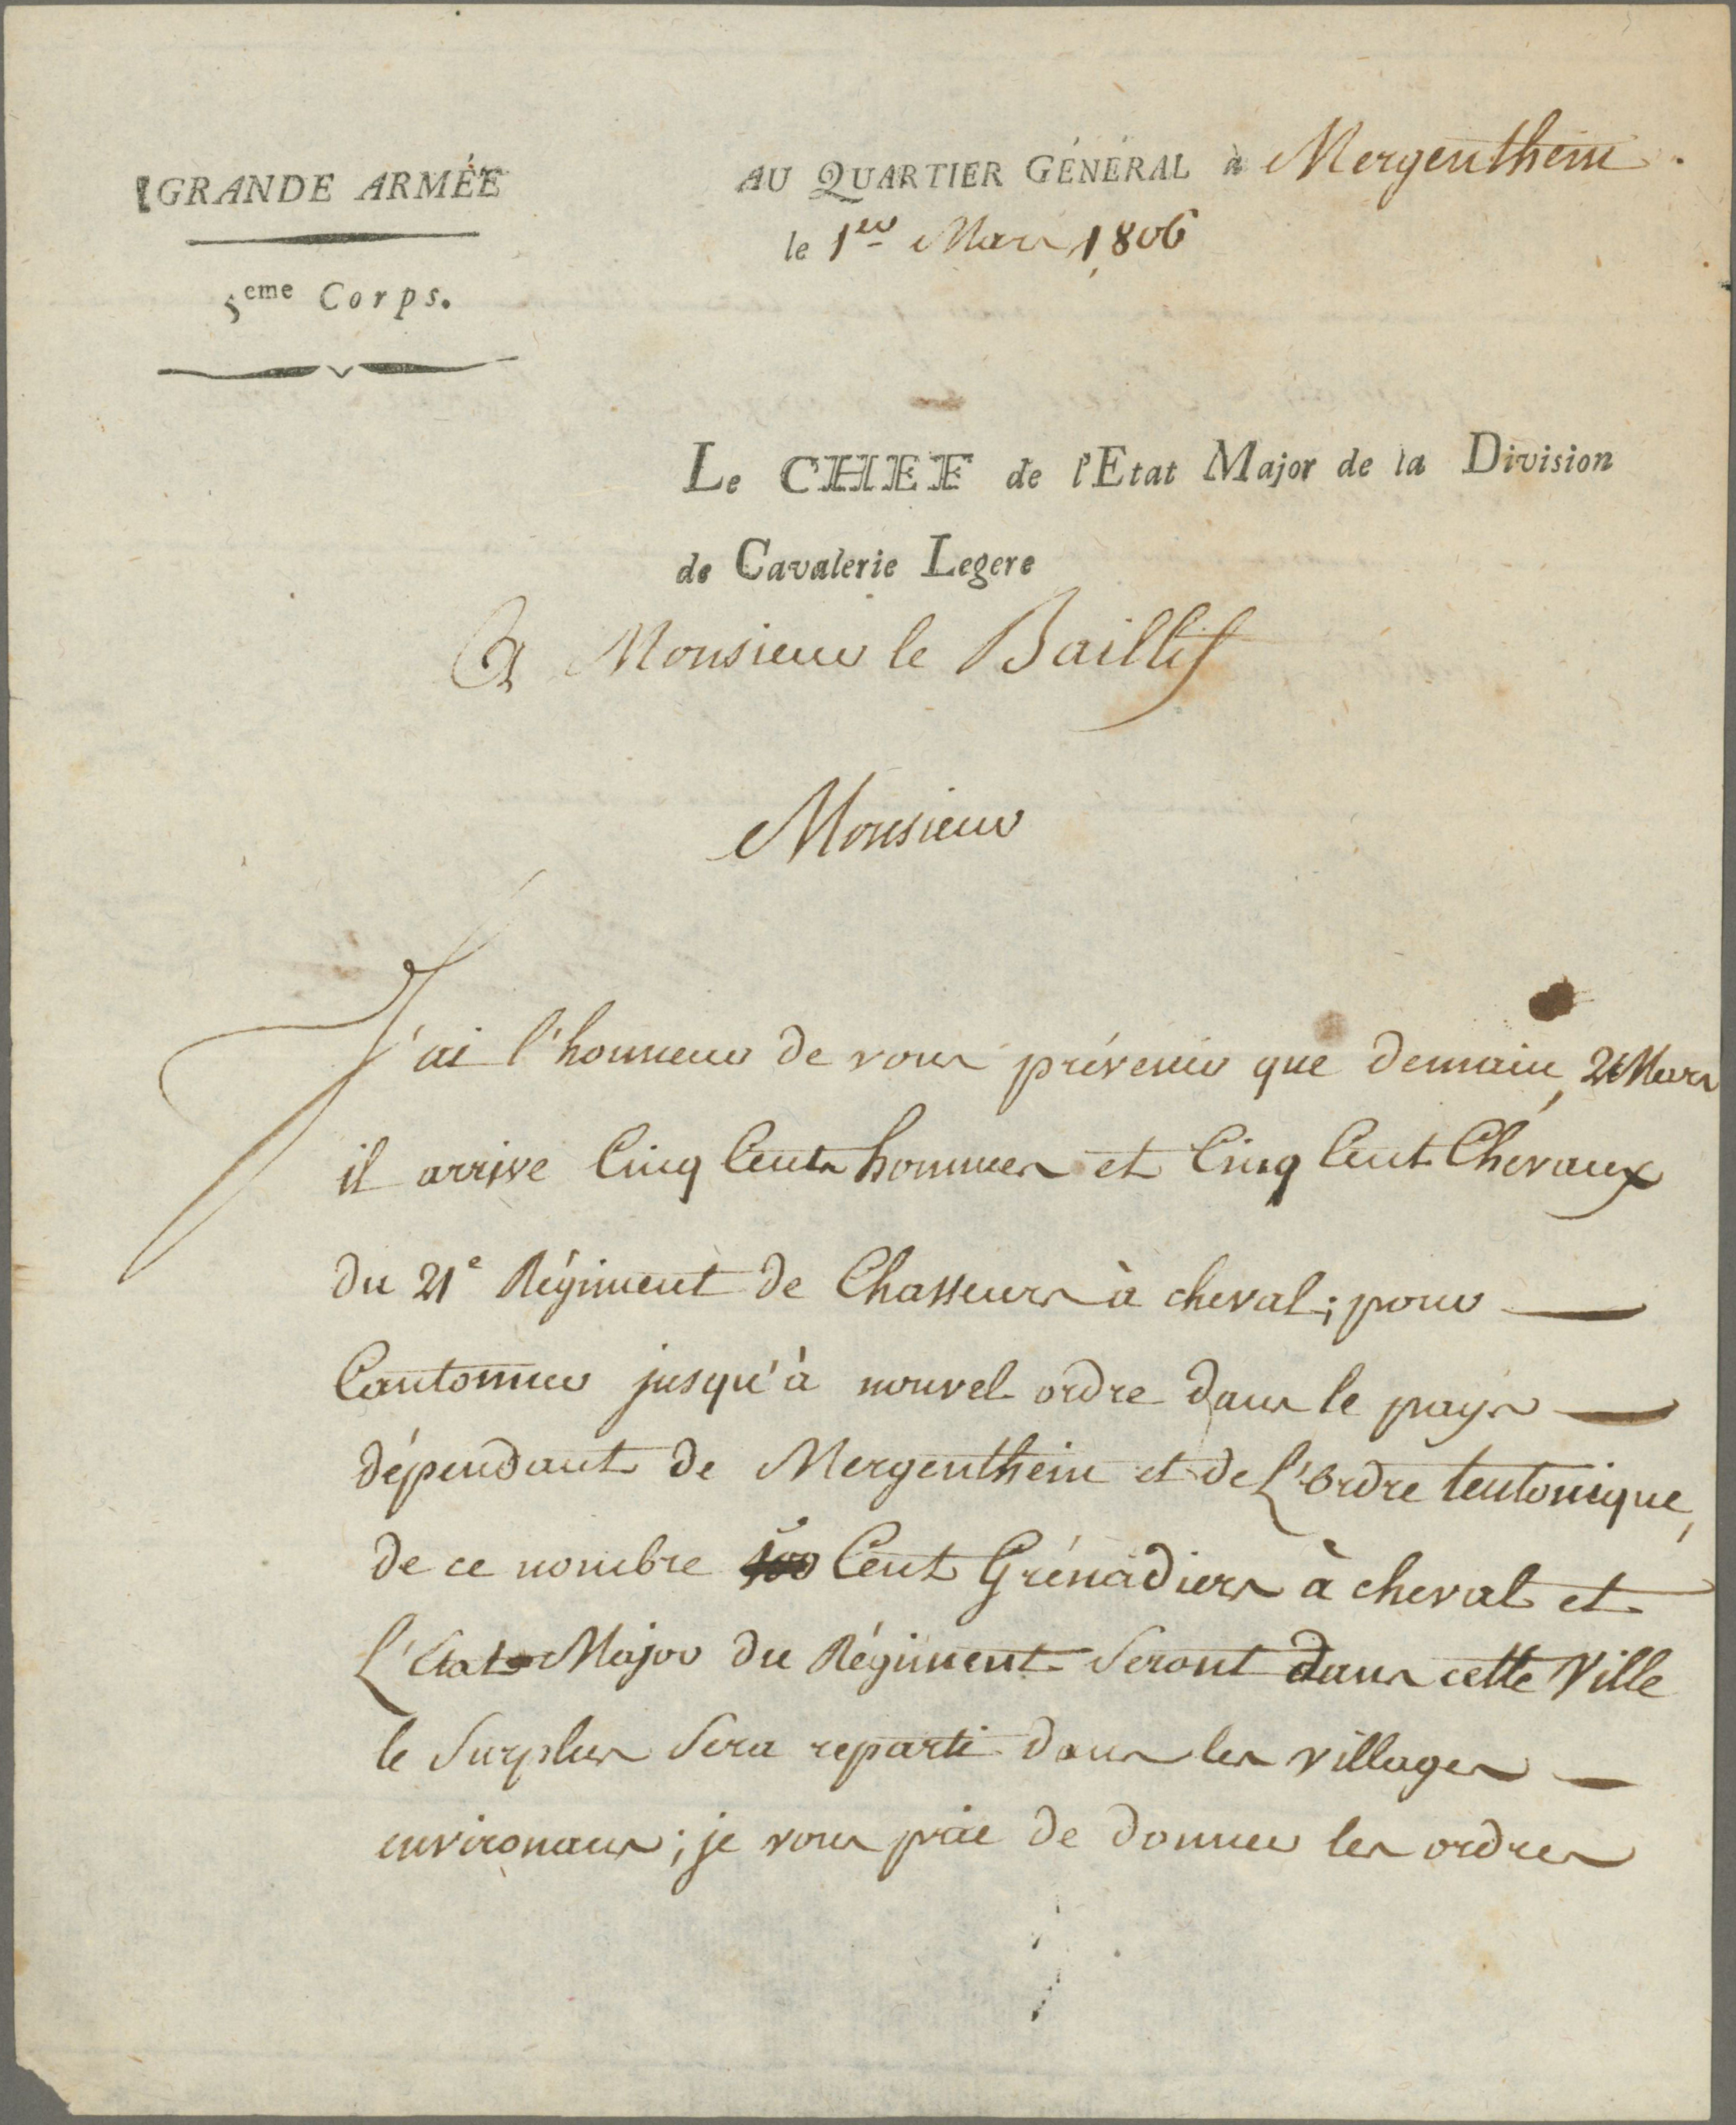 GRANDE ARMÉE
5eme Corps.
AU QUARTIER GÉNÉRAL à Mergentheim.
le 1er Mars 1806
Le CHEF de l'Etat Major de la Division
de Cavalerie Legere
A Monsieur le Baillif
Monsieur
J'ai l'honneur de vous prévenir que demain, 2 Mars
il arrive Cinq Cents hommes et Cinq Cent Chevaux
du 21e Régiment de Chasseurs à cheval; pour
Cantonner jusqu'à nouvel ordre dans le pays
dépendant de Mergentheim et de L'ordre teutonique,
de ce nombre Cent Grénadiers à cheval et
L'Etat Major du Régiment Seront dans cette Ville
le Surplus Sera reparti dans les villages
environans; je vous prie de donner les ordres